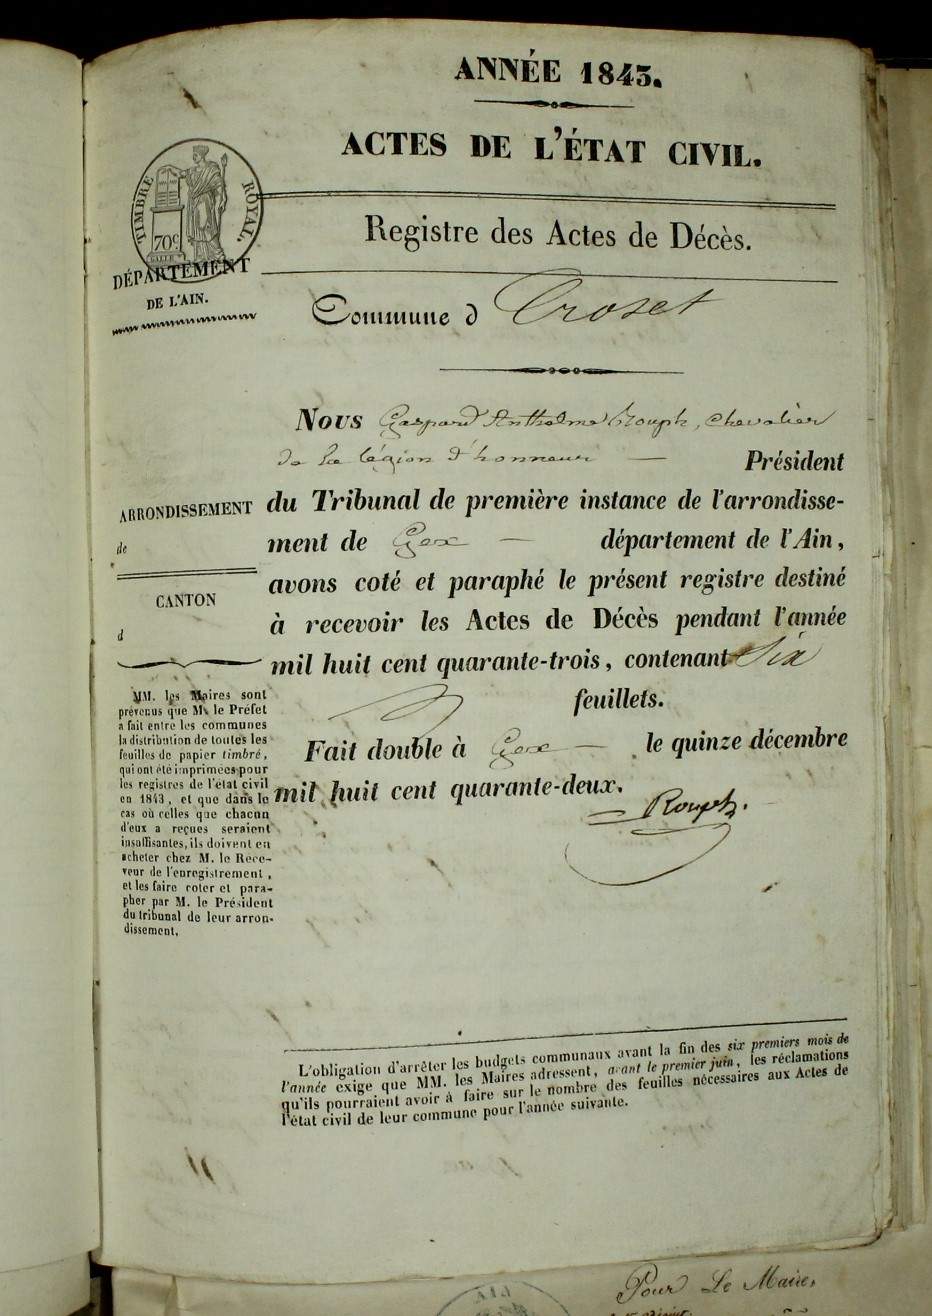 ANNÉE 1843.
ACTES DE L'ÉTAT CIVIL.
TIMBRE ROYAL.
70c
DÉPARTEMENT
DE L'AIN.
Registre des Actes de Décès.
Commune d Croset
Nous Gaspard Anthelme Rouph, chevalier
de la légion d'honneur — Président
du Tribunal de première instance de l'arrondisse-
ment de Gex — département de l'Ain,
avons coté et paraphé le présent registre destiné
à recevoir les Actes de Décès pendant l'année
mil huit cent quarante-trois, contenant Six
feuillets.
Fait double à Gex — le quinze décembre
mil huit cent quarante-deux.
Rouph.
ARRONDISSEMENT
de
CANTON
d
MM. les Maires sont
prévenus que M. le Préfet
a fait entre les communes
la distribution de toutes les
feuilles de papier timbré,
qui ont été imprimées pour
les registres de l'état civil
en 1843, et que dans le
cas où celles que chacun
d'eux a reçues seraient
insuffisantes, ils doivent en
acheter chez M. le Rece-
veur de l'enregistrement,
et les faire coter et para-
pher par M. le Président
du tribunal de leur arron-
dissement.
L'obligation d'arrêter les budgets communaux avant la fin des six premiers mois de
l'année exige que MM. les Maires adressent, avant le premier juin, les réclamations
qu'ils pourraient avoir à faire sur le nombre des feuilles nécessaires aux Actes de
l'état civil de leur commune pour l'année suivante.
Pour Le Maire,